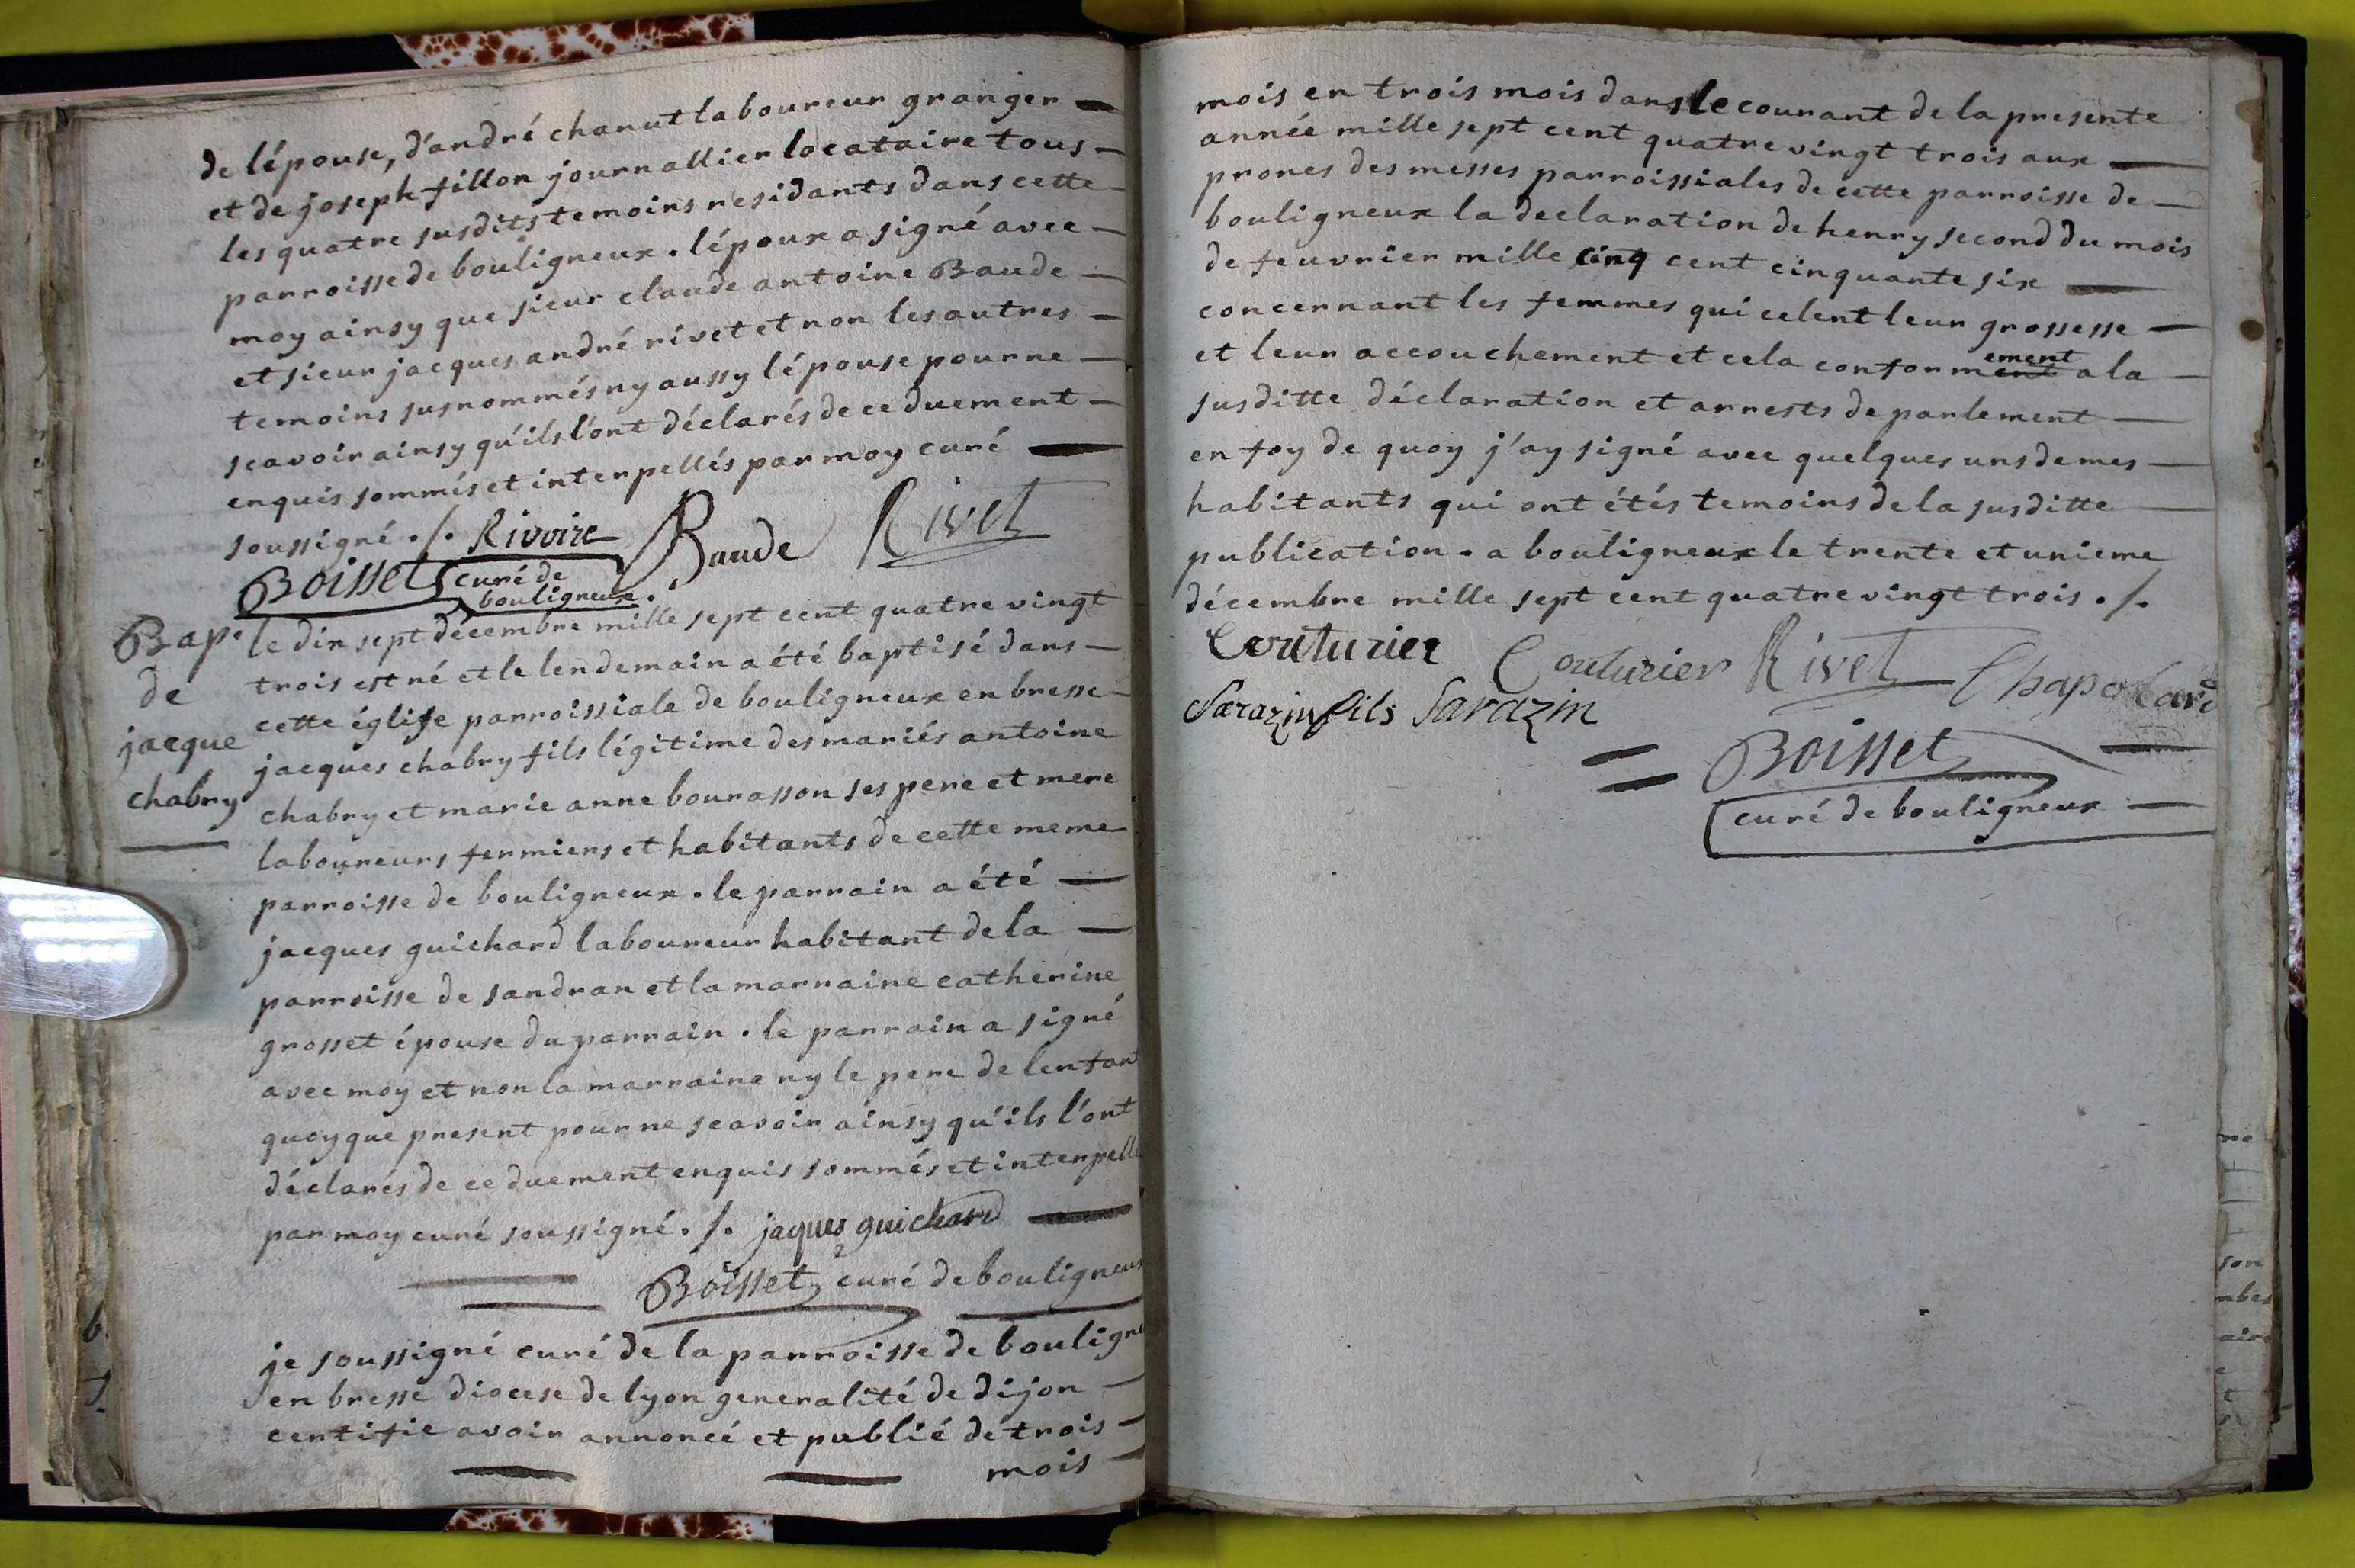 de lépouse, d'andré chanut laboureur granger
et de joseph fillon journallier locataire tous
les quatre susdits temoins residants dans cette
parroisse de bouligneux. lépoux a signé avec
moy ainsy que sieur claude antoine Baude
et sieur jacques andré rivet et non les autres
temoins susnommés ny aussy lépouse pour ne
scavoir ainsy qu'ils l'ont déclarés de ce duement
enquis sommés et interpellés par moy curé
soussigné ./. Rivoire Baude Rivet
Boisset curé de
bouligneux.
Bap. de jacque chabry
le dix sept décembre mille sept cent quatre vingt
trois est né et le lendemain a été baptisé dans
cette église parroissiale de bouligneux en bresse
jacques chabry fils légitime des mariés antoine
chabry et marie anne bourasson ses pere et mere
laboureurs fermiers et habitants de cette meme
parroisse de bouligneux. le parrain a été
jacques guichard laboureur habitant de la
parroisse de sandran et la marraine catherine
grosset épouse du parrain. le parrain a signé
avec moy et non la marraine ny le pere de lenfant
quoyque present pour ne scavoir ainsy qu'ils l'ont
déclarés de ce duement enquis sommés et interpellé
par moy curé soussigné ./. jaques guichard
Boisset curé de bouligneux
je soussigné curé de la parroisse de bouligne
en bresse diocese de lyon generalité de dijon
certifie avoir annoncé et publié de trois
mois
mois en trois mois dans le courant de la presente
année mille sept cent quatre vingt trois aux
prones des messes parroissiales de cette parroisse de
bouligneux la declaration de henry second du mois
de feuvrier mille cinq cent cinquante six
concernant les femmes qui celent leur grossesse
et leur accouchement et cela conformement a la
susditte déclaration et arrests de parlement
en foy de quoy j'ay signé avec quelques uns de mes
habitants qui ont étés temoins de la susditte
publication. a bouligneux le trente et unieme
décembre mille sept cent quatre vingt trois ./.
Couturier Couturier Rivet Chapolard
Sarazin fils Sarazin
Boisset
curé de bouligneux